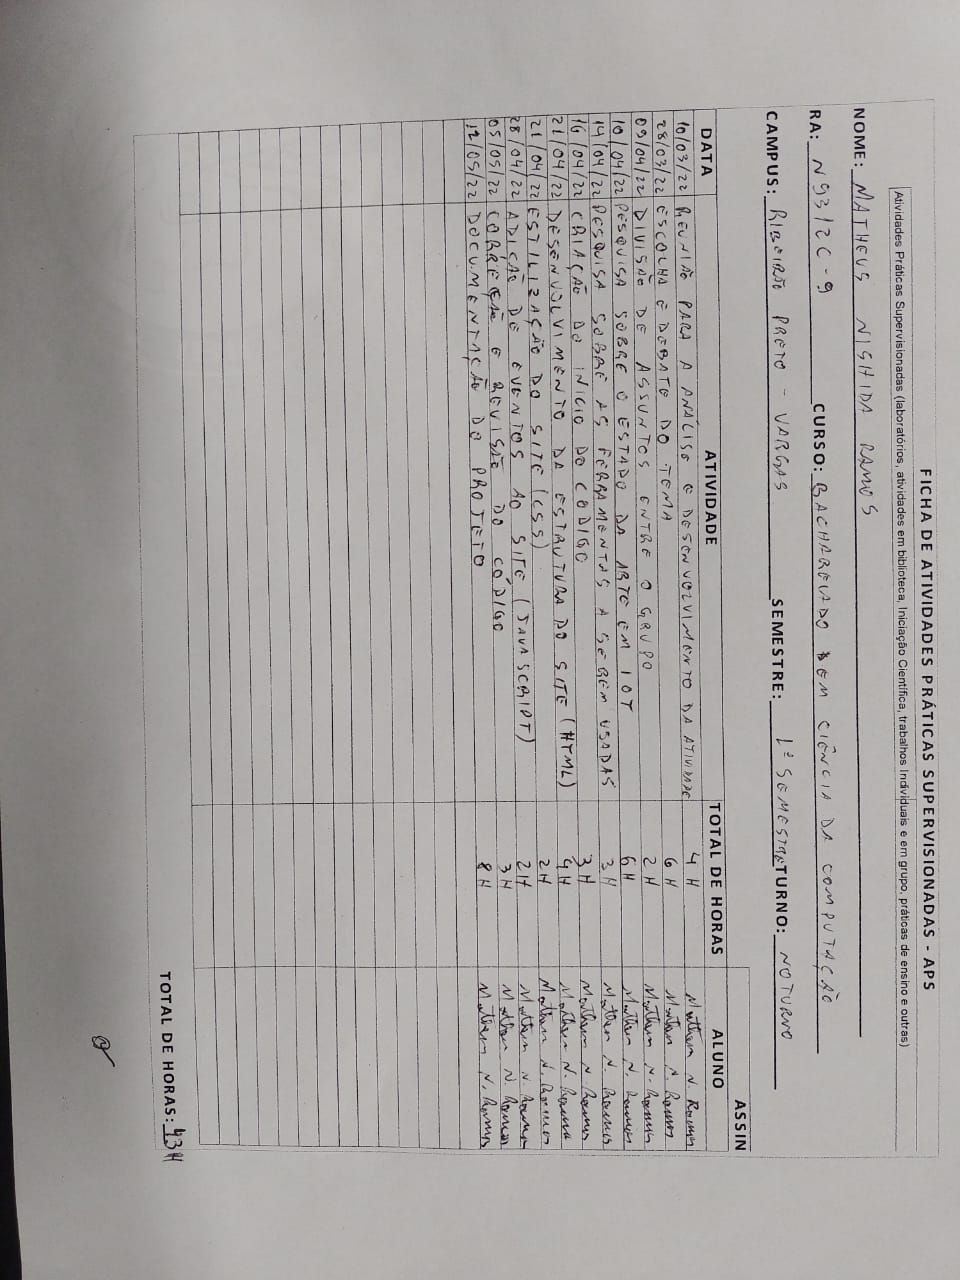 FICHA DE ATIVIDADES PRÁTICAS SUPERVISIONADAS - APS
Atividades Práticas Supervisionadas (laboratórios, atividades em biblioteca, Iniciação Científica, trabalhos Individuais e em grupo, práticas de ensino e outras)
NOME: MATHEUS NISHIDA RAMOS
RA: N9312C-9 CURSO: BACHARELADO EM CIÊNCIA DA COMPUTAÇÃO
CAMPUS: RIBEIRÃO PRETO - VARGAS SEMESTRE: 1º SEMESTRE TURNO: NOTURNO
ASSIN
DATA ATIVIDADE TOTAL DE HORAS ALUNO
10/03/22 REUNIÃO PARA A ANÁLISE E DESENVOLVIMENTO DA ATIVIDADE 4 H Matheus N. Ramos
28/03/22 ESCOLHA E DEBATE DO TEMA 6 H Matheus N. Ramos
09/04/22 DIVISÃO DE ASSUNTOS ENTRE O GRUPO 2 H Matheus N. Ramos
10/04/22 PESQUISA SOBRE O ESTADO DA ARTE EM IOT 6 H Matheus N. Ramos
14/04/22 PESQUISA SOBRE AS FERRAMENTAS A SEREM USADAS 3 H Matheus N. Ramos
16/04/22 CRIAÇÃO DO INICIO DO CODIGO 3 H Matheus N. Ramos
21/04/22 DESENVOLVIMENTO DA ESTRUTURA DO SITE (HTML) 4 H Matheus N. Ramos
21/04/22 ESTILIZAÇÃO DO SITE (CSS) 2 H Matheus N. Ramos
28/04/22 ADIÇÃO DE EVENTOS AO SITE (JAVASCRIPT) 2 H Matheus N. Ramos
05/05/22 CORREÇÃO E REVISÃO DO CÓDIGO 3 H Matheus N. Ramos
12/05/22 DOCUMENTAÇÃO DO PROJETO 8 H Matheus N. Ramos
TOTAL DE HORAS: 43H